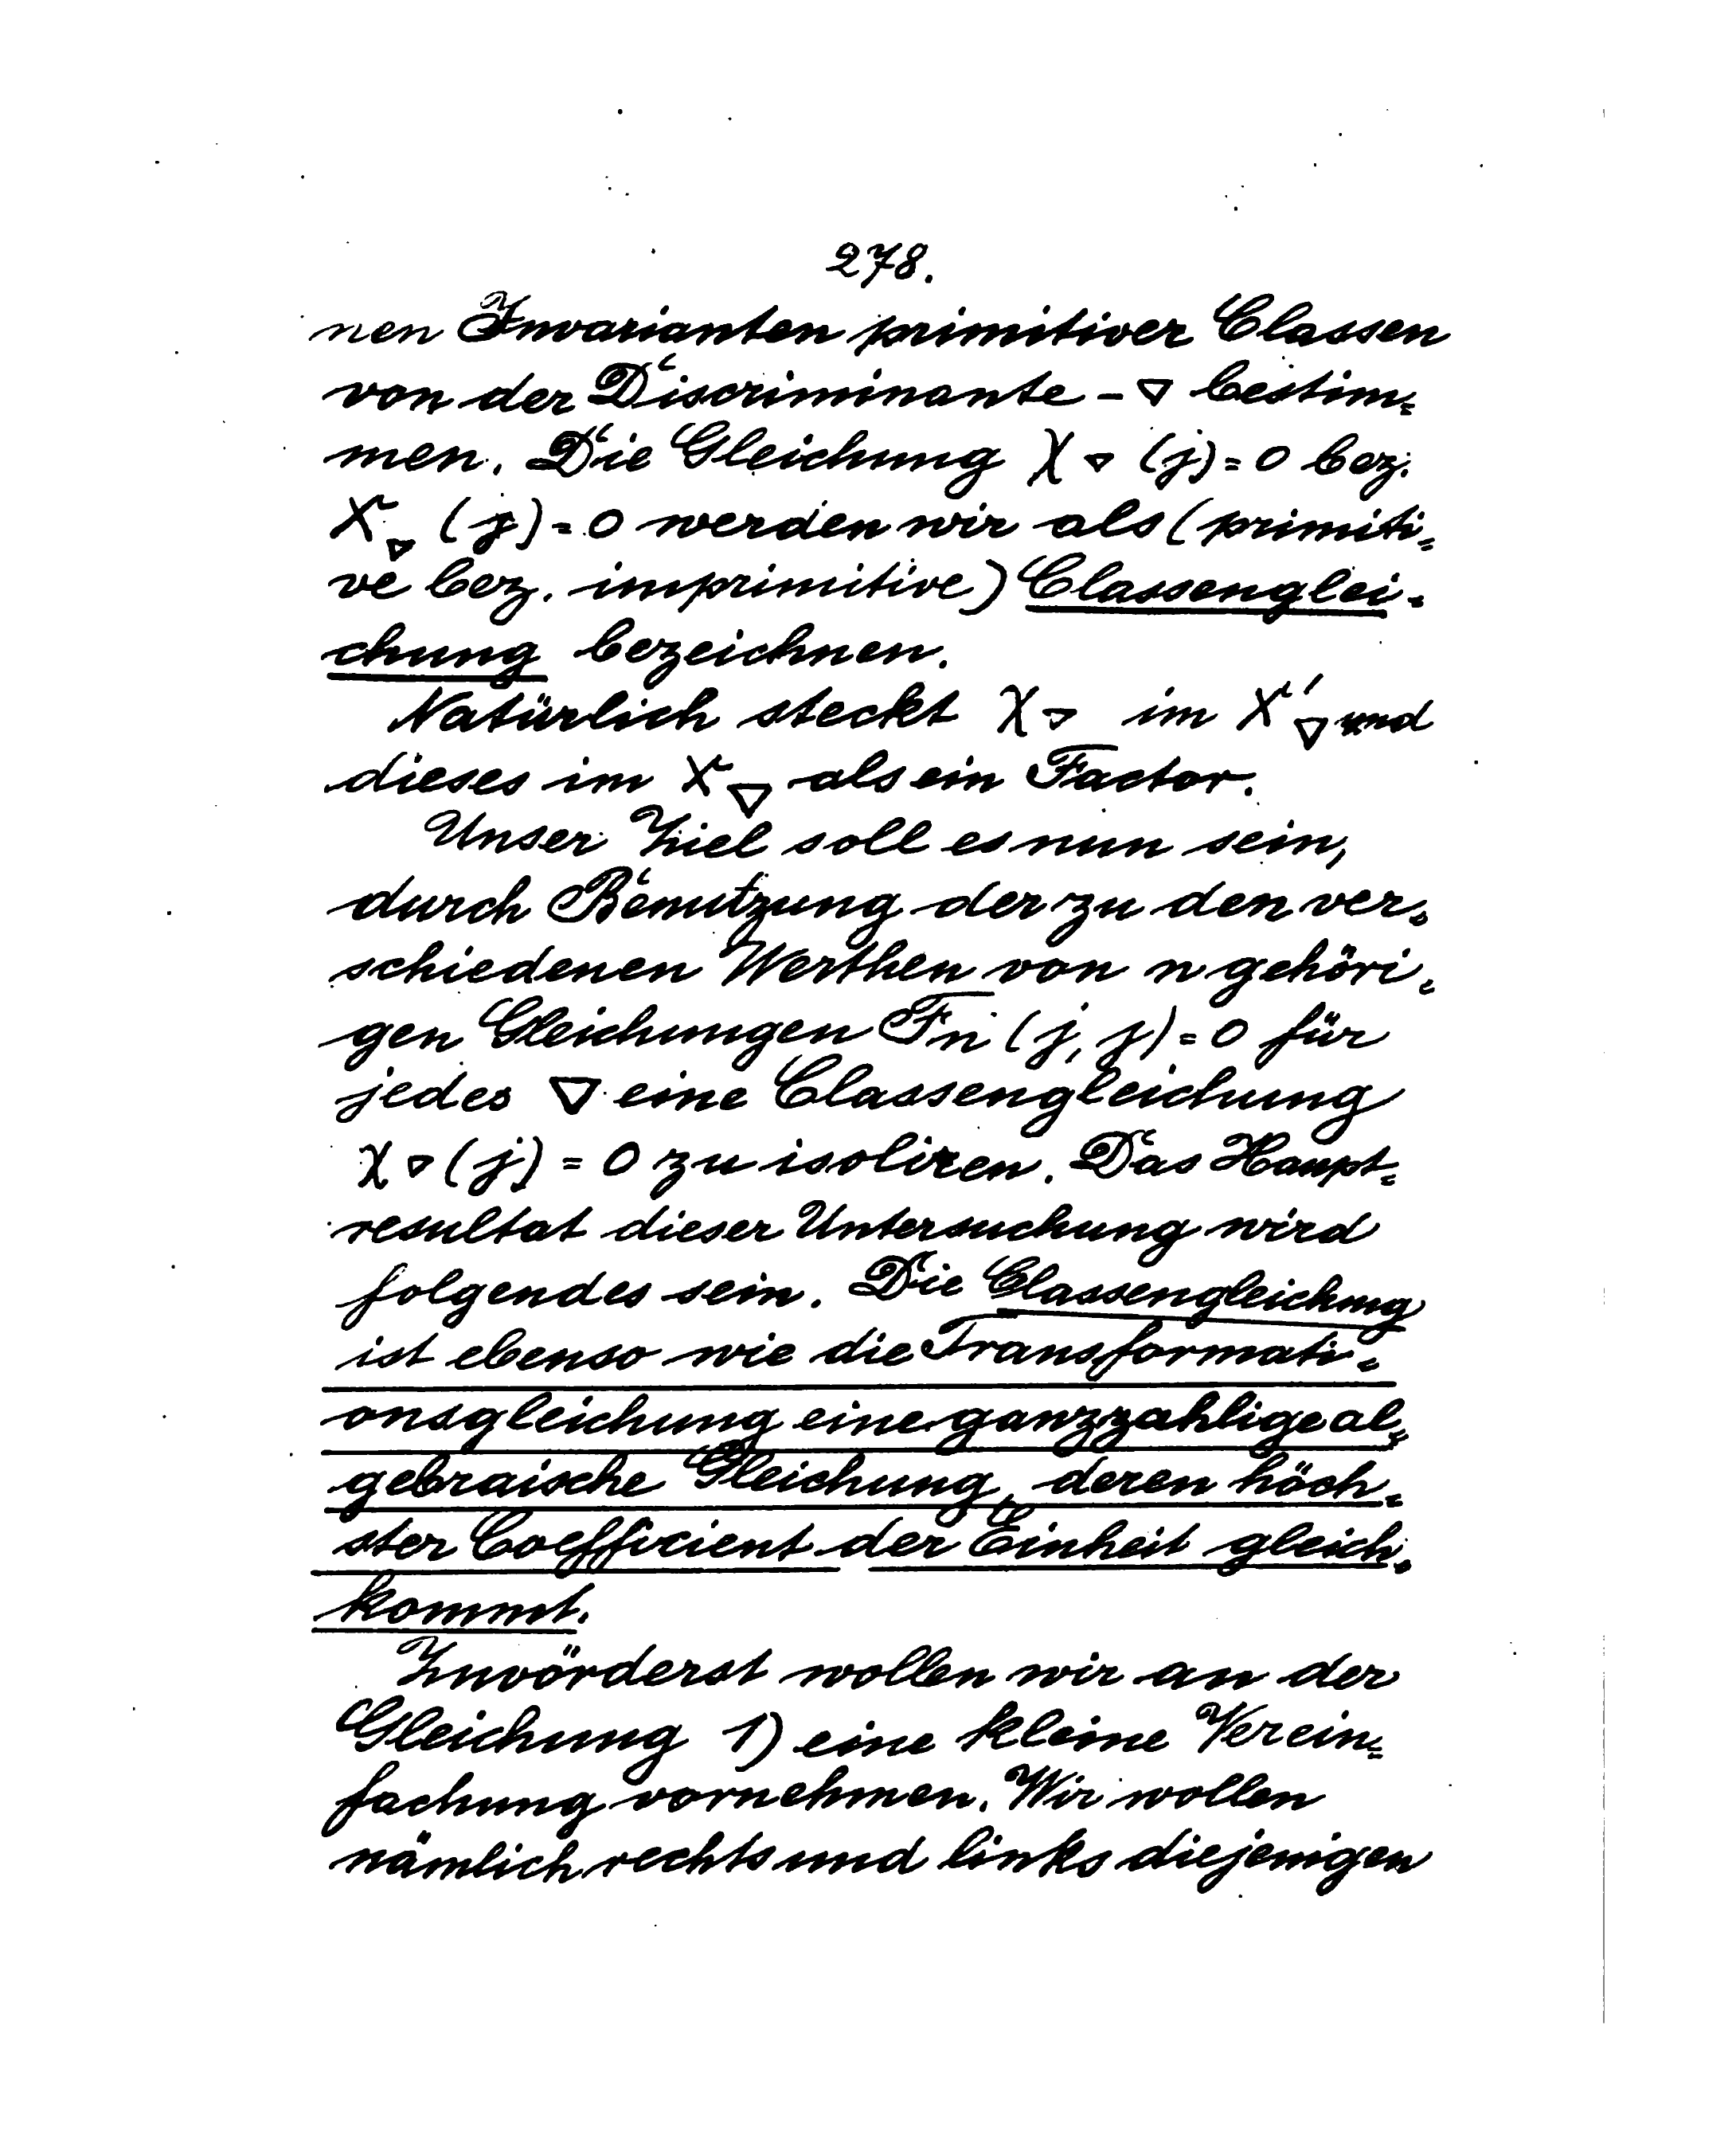 278.
nen Invarianten primitiver Classen
von der Discriminante -∇ bestim=
men. Die Gleichung χ∇ (j) = 0 bez.
X∇ (j) = 0 werden wir als (primiti=
ve bez. imprimitive) Classenglei=
chung bezeichnen.
Natürlich steckt χ∇ im X'∇ und
dieses im X∇ als ein Factor.
Unser Ziel soll es nun sein,
durch Benutzung der zu den ver=
schiedenen Werthen von n gehöri=
gen Gleichungen Fn (j, j) = 0 für
jedes ∇ eine Classengleichung
χ∇ (j) = 0 zu isoliren. Das Haupt=
resultat dieser Untersuchung wird
folgendes sein. Die Classengleichung
ist ebenso wie die Transformati=
onsgleichung eine ganzzahlige al=
gebraische Gleichung, deren höch=
ster Coefficient der Einheit gleich=
kommt.
Zuvörderst wollen wir an der
Gleichung 1) eine kleine Verein=
fachung vornehmen. Wir wollen
nämlich rechts und links diejenigen